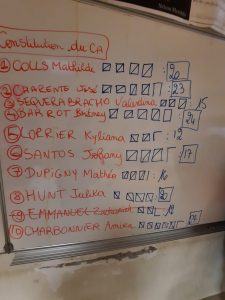 Constitution du CA
① COLLS Mathilde : 20
② CHARENTE José : 23
③ SEGUERA BRACHO Valentina : 15
④ BARROT Britney : 24
⑤ LORRIER Kyliana : 12
⑥ SANTOS Tiefany : 17
⑦ DUPIGNY Mathéo : 16
⑧ HUNT Julika : 20
⑨ EMMANUEL
⑩ CHARBONNIER Amira